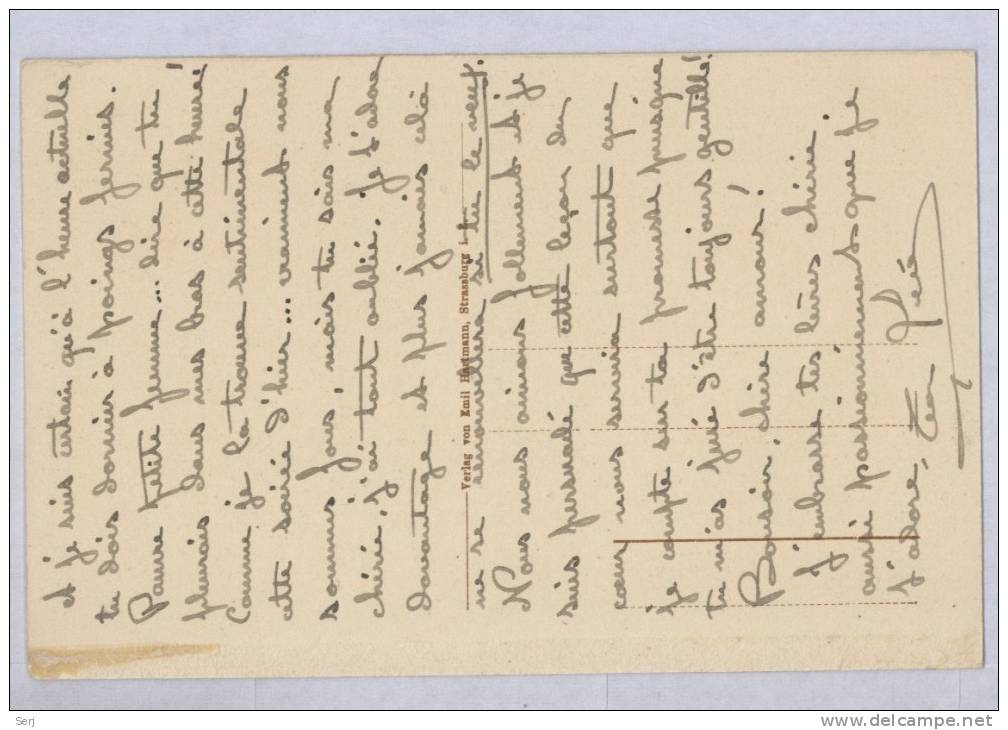 et je suis certain qu'à l'heure actuelle
tu dois dormir à poings fermés.
Pauvre petite femme... dire que tu
pleurais dans mes bras à cette heure!
Comme je la trouve sentimentale
cette soirée d'hier... vraiment nous
sommes fous, mais tu sais ma
chérie, j'ai tout oublié, je t'adore
davantage et plus jamais celà
ne se renouvellera si tu le veux.
Nous nous aimons follement et je
suis persuadé que cette leçon du
cœur nous servira surtout que
je compte sur ta promesse puisque
tu m'as juré d'être toujours gentille!
Bonsoir, chère amour!
J'embrasse tes lèvres chérie
aussi passionnément que je
t'adore, ton
Verlag von Emil Hartmann, Strassburg i.
Serj
www.delcampe.net